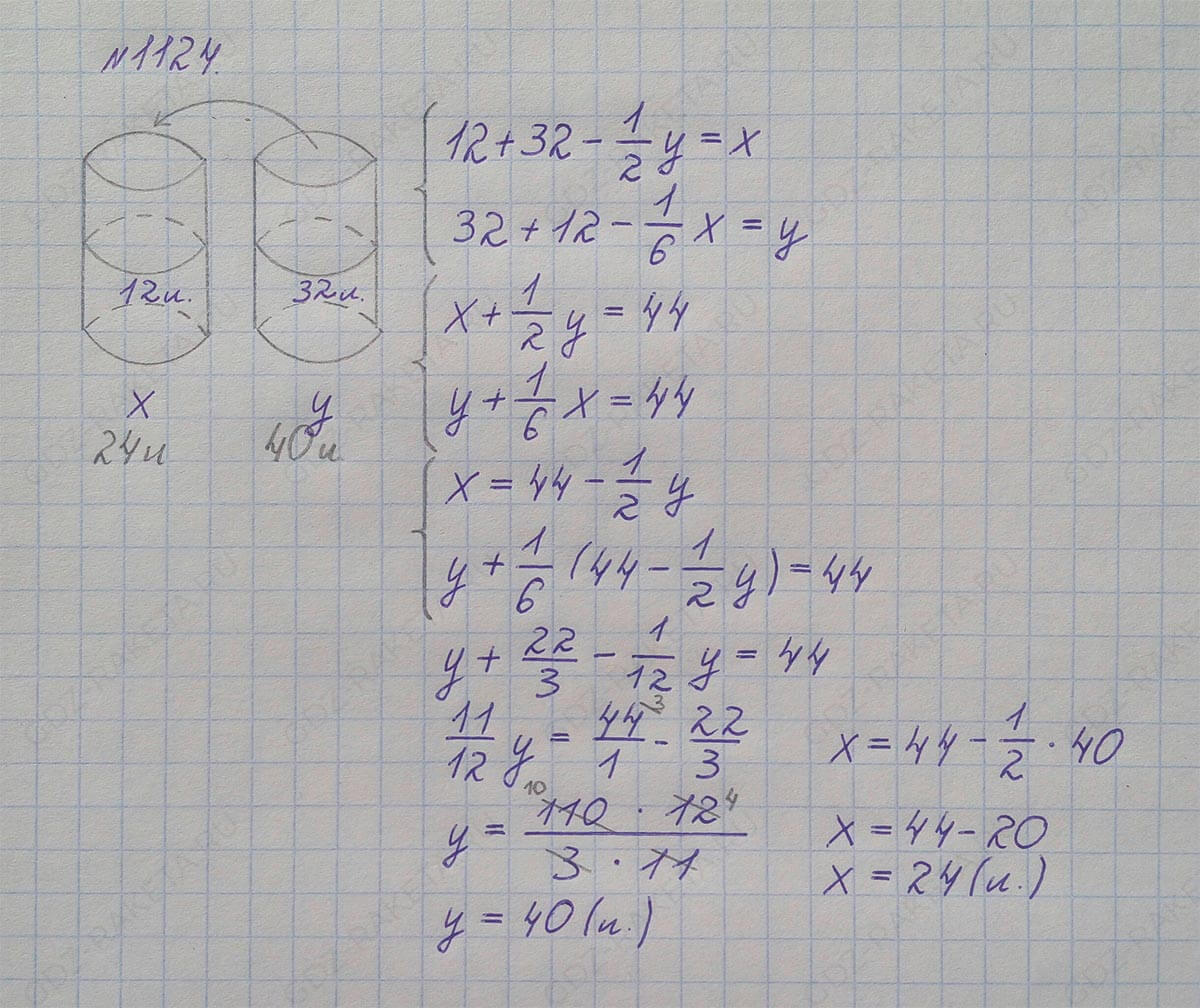 №1124.
12л. 32л.
x y
24л 40л
12+32-\frac{1}{2}y=x
32+12-\frac{1}{6}x=y
x+\frac{1}{2}y=44
y+\frac{1}{6}x=44
x=44-\frac{1}{2}y
y+\frac{1}{6}(44-\frac{1}{2}y)=44
y+\frac{22}{3}-\frac{1}{12}y=44
\frac{11}{12}y=\frac{44}{1}^3-\frac{22}{3}
y=\frac{^{10}110 \cdot 12^4}{3 \cdot 11}
y=40(л.)
x=44-\frac{1}{2}\cdot40
x=44-20
x=24(л.)
GDZ-RAKETA.RU